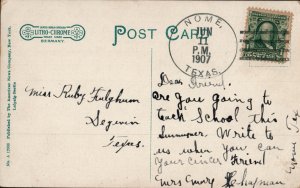 LITHO-CHROME
GERMANY.
POST CARD
NOME,
JUN
11
P.M.
1907
TEXAS.
Miss Ruby Fulghum
Seguin
Texas.
Dear Friend,
Are you going to
teach School this
Summer. Write to
us when you can
Your Friend
Mrs Mary Chapman
No. A 12950 Published by The American News Company, New York.
Leipzig-Berlin